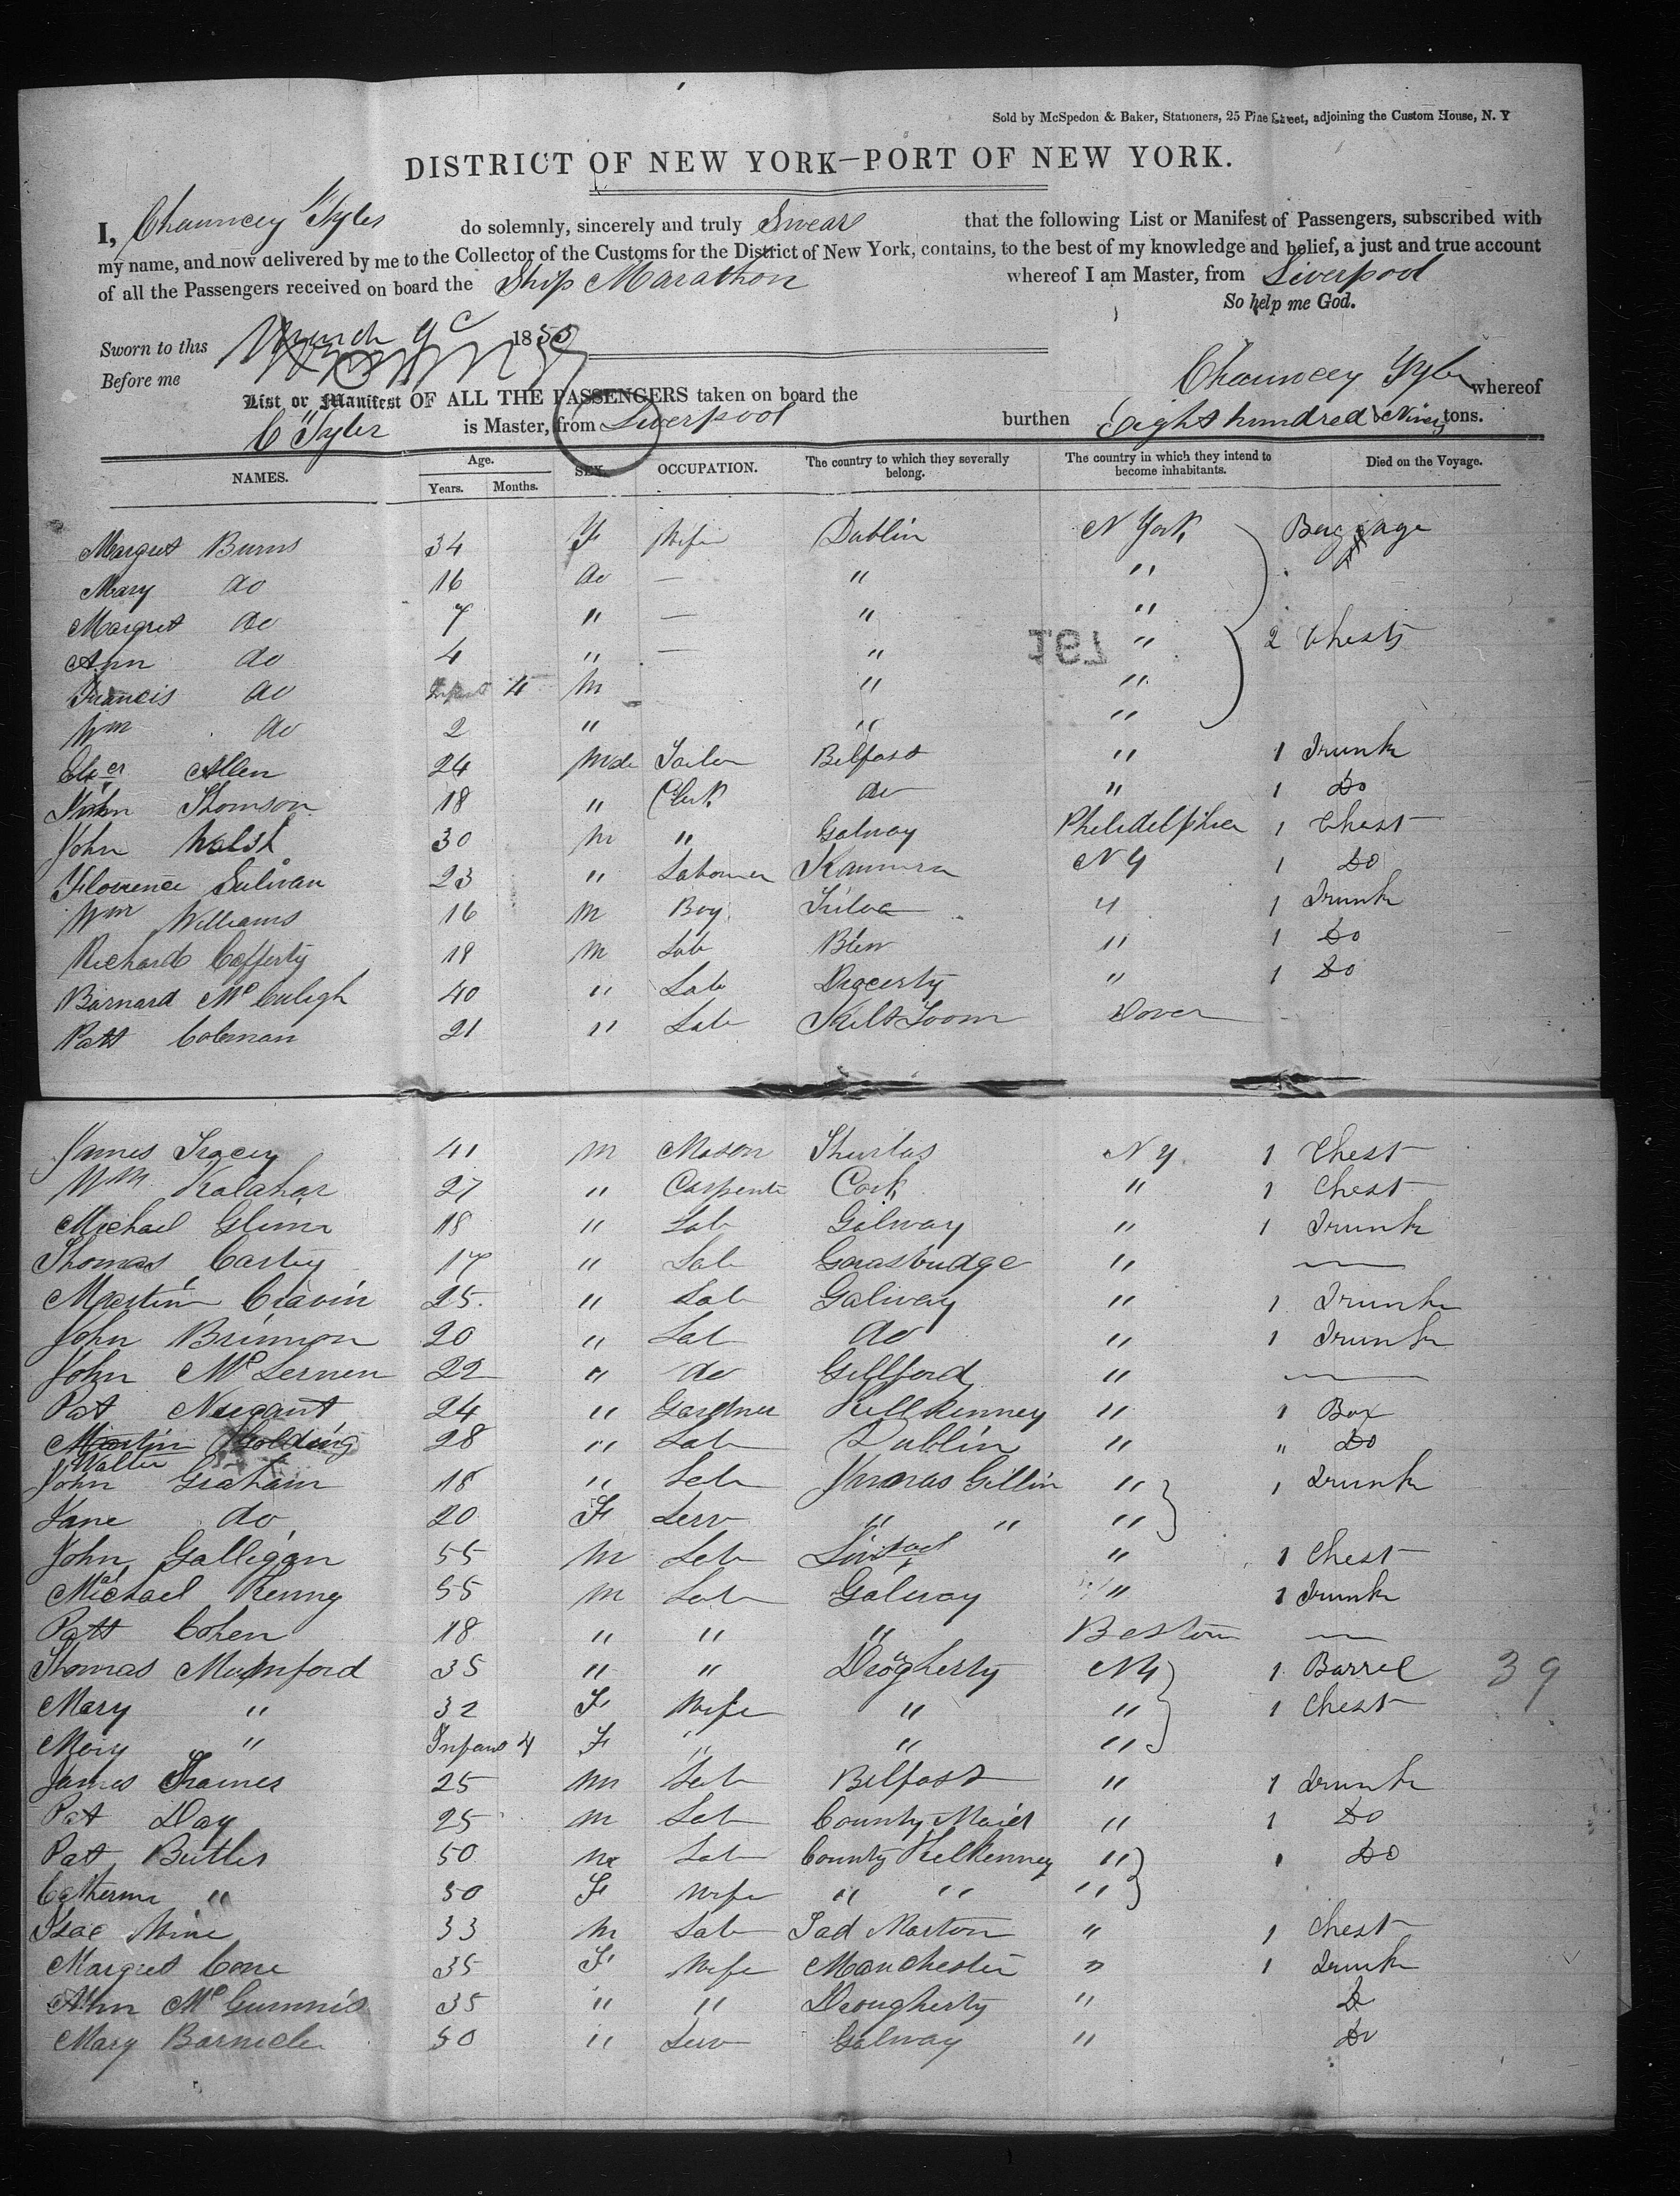 Sold by McSpedon & Baker, Stationers, 25 Pine Street, adjoining the Custom House, N. Y
DISTRICT OF NEW YORK—PORT OF NEW YORK.
I, Chauncey Tyler do solemnly, sincerely and truly Swear that the following List or Manifest of Passengers, subscribed with
my name, and now delivered by me to the Collector of the Customs for the District of New York, contains, to the best of my knowledge and belief, a just and true account
of all the Passengers received on board the Ship Marathon whereof I am Master, from Liverpool
So help me God.
Sworn to this March 9 1853
Before me Chauncey Tyler
List or Manifest OF ALL THE PASSENGERS taken on board the whereof
C Tyler is Master, from Liverpool burthen Eight hundred & Ninety tons.
NAMES. Age. Years. Months. SEX. OCCUPATION. The country to which they severally belong. The country in which they intend to become inhabitants. Died on the Voyage.
Margret Burns 34 F Wife Dublin N York Baggage
Mary do 16 do — " "
Margret do 7 " — " "
Ann do 4 " — " " 2 Chests
167
Francis do Infant 4 M " "
Wm do 2 " " "
Allen 24 Male Tailor Belfast " 1 Trunk
John Thomson 18 " Clerk do " 1 Do
John Walsh 30 M " Galway Philidelphia 1 Chest
Florence Sulivan 23 " Labourer NY 1 Do
Wm Williams 16 M Boy " 1 Trunk
Richard Cafferty 19 M Lab " 1 Do
Barnard 40 " Lab " 1 Do
Patt Coleman 21 " Lab Kilt Toom Dover
James Tracey 41 M Mason Thurlas NY 1 Chest
Wm Kalahar 27 " Carpente Cork " 1 Chest
Michael 18 " Lab Galway " 1 Trunk
Thomas Carty 17 " Lab " —
Martin Cravin 25 " Lab Galway " 1 Trunk
John Brinnon 20 " Lab do " 1 Trunk
John McLernen 22 " do Gillford " —
Pat Nugant 24 " Gardner Killkenney " 1 Box
Martin Golding 28 " Lab Dublin " " Do
Walter
John Graham 18 " Lab " 1 Trunk
Jane do 20 F Serv " " "
John Galligan 55 M Lab " 1 Chest
Michael Kenny 55 M Lab Galway " 1 Trunk
Patt Cohen 18 " " " Boston —
Thomas Mumford 35 " " Drogherty NY 1 Barrel 39
Mary " 32 F Wife " " 1 Chest
Mary " Infant 4 F " " "
James 25 M Lab Belfast " 1 Trunk
Pat Day 25 M Lab County " 1 Do
Pat Butler 50 M Lab County Kilkenney " 1 Do
Catherine " 50 F Wife " " "
Isac 33 M Lab " 1 Chest
Margret Cone 35 F Wife Manchester " 1 Trunk
Ann McGuinnis 35 " " Drougherty " D
Mary Barnicle 50 " Serv Galway " Do